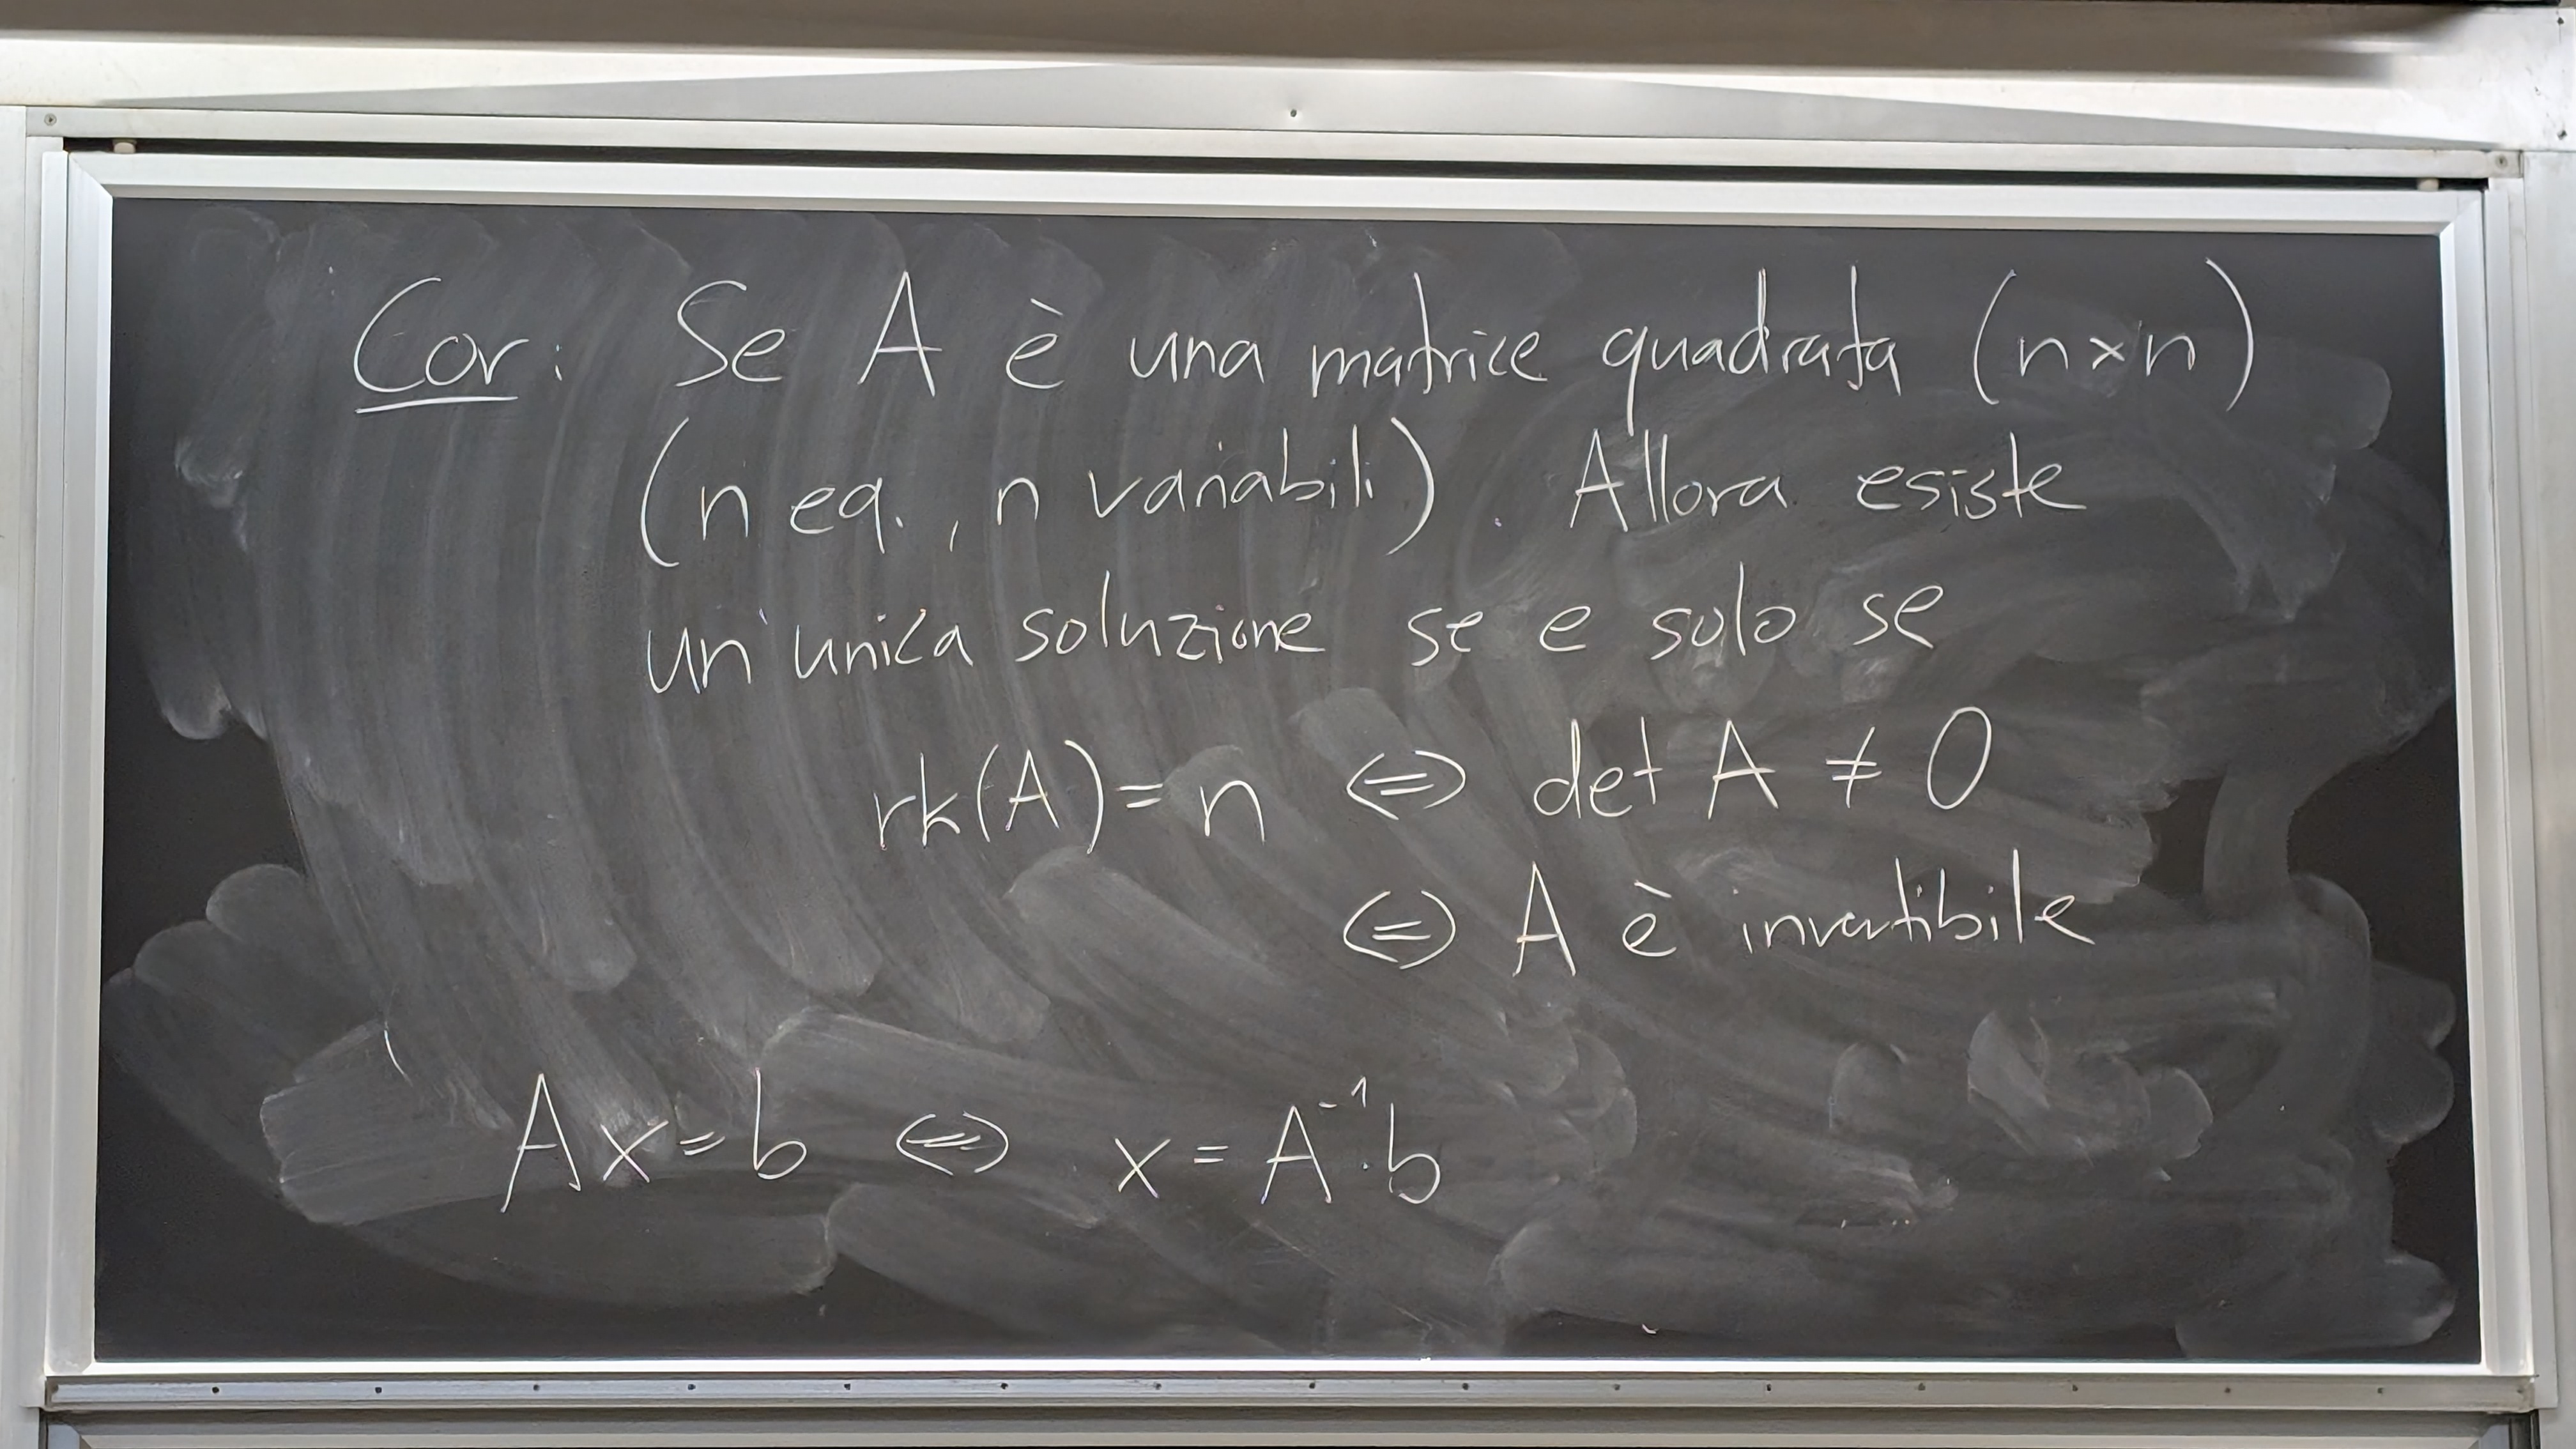 Cor: Se A è una matrice quadrata (n×n)
(n eq., n variabili). Allora esiste
un'unica soluzione se e solo se
rk(A)=n ⇔ det A ≠ 0
⇔ A è invertibile
Ax=b ⇔ x=A⁻¹·b